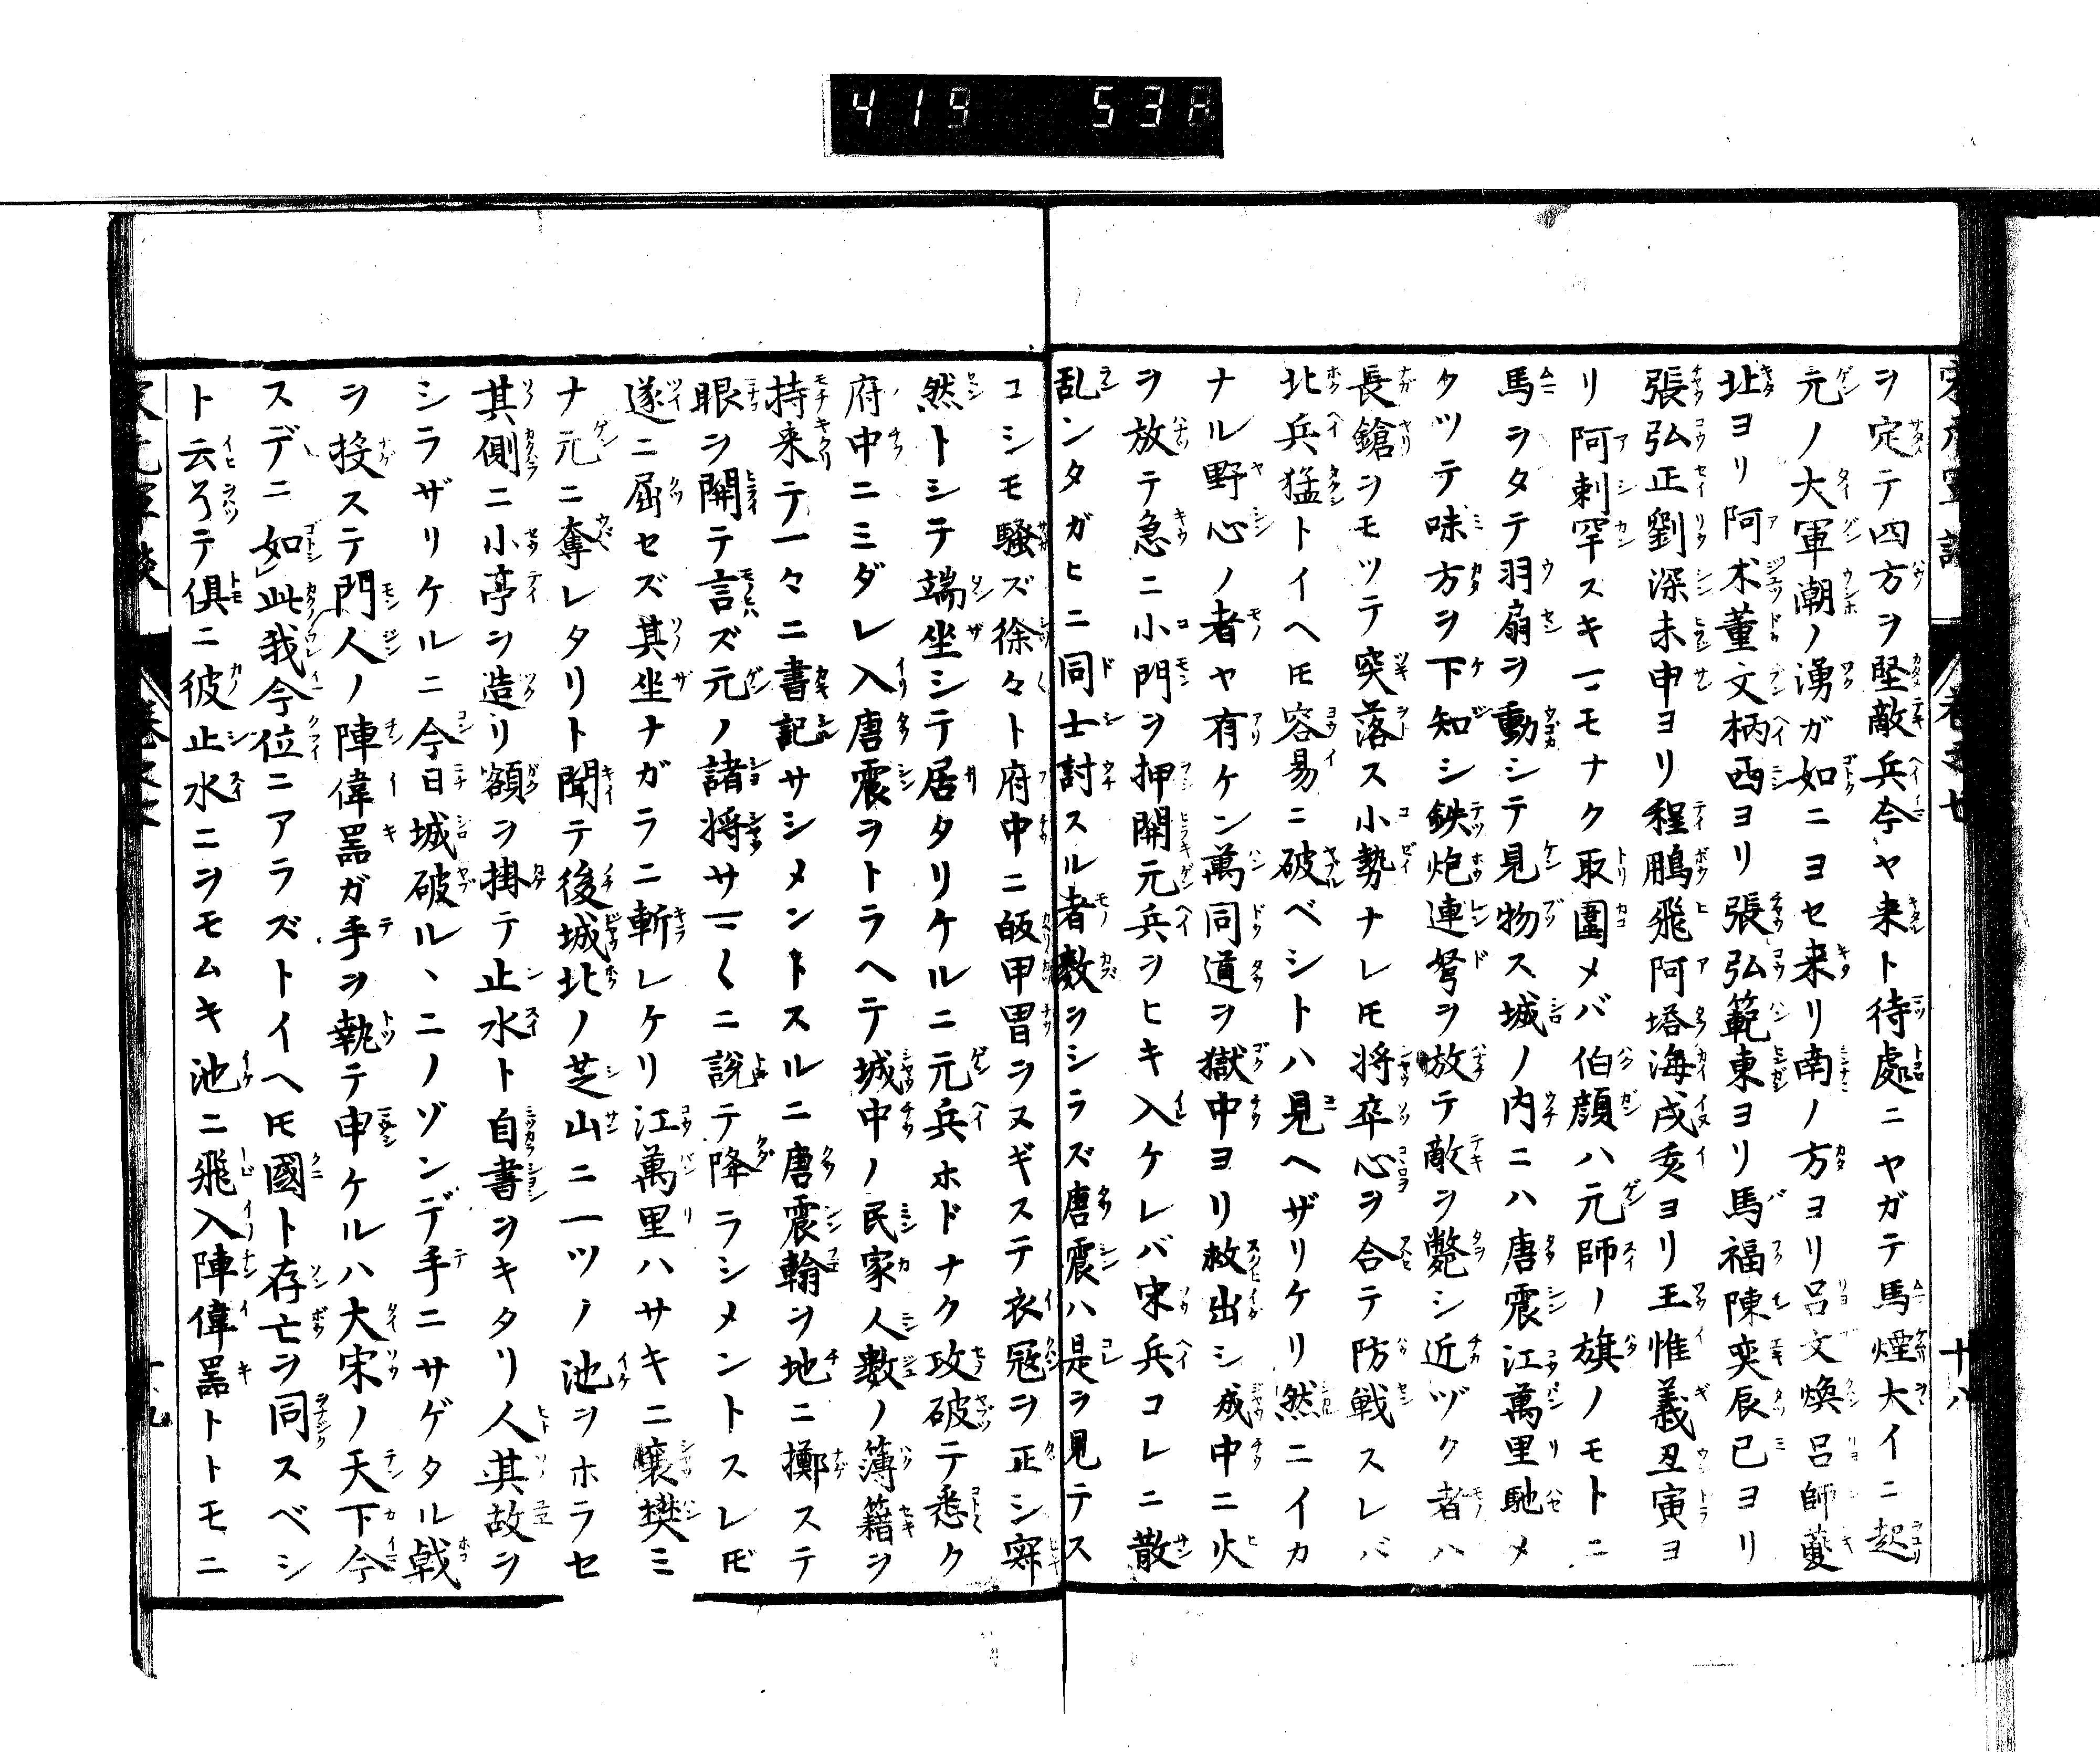 419 53
ヲ定テ四方ヲ堅敵兵今ヤ来ト待處ニヤガテ馬煙大イニ起
元ノ大軍潮ノ湧ガ如ニヨセ来リ南ノ方ヨリ呂文煥呂師夔
北ヨリ阿朮董文柄西ヨリ張弘範東ヨリ馬福陳奕辰巳ヨリ
張弘正劉深未申ヨリ程鵬飛阿塔海戌亥ヨリ王惟義丑寅ヨ
リ阿剌罕スキ一モナク取圍メバ伯顔ハ元師ノ旗ノモトニ
馬ヲタテ羽扇ヲ動シテ見物ス城ノ内ニハ唐震江萬里馳メ
クツテ味方ヲ下知シ鉄炮連弩ヲ放テ敵ヲ斃シ近ヅク者ハ
長鎗ヲモツテ突落ス小勢ナレ𪜈将卒心ヲ合テ防戦スレバ
北兵猛トイヘ𪜈容易ニ破ベシトハ見ヘザリケリ然ニイカ
ナル野心ノ者ヤ有ケン萬同道ヲ獄中ヨリ救出シ城中ニ火
ヲ放テ急ニ小門ヲ押開元兵ヲヒキ入ケレバ宋兵コレニ散
乱シタガヒニ同士討スル者数ヲシラズ唐震ハ是ヲ見テス
コシモ騒ズ徐々ト府中ニ皈甲冑ヲヌギステ衣冠ヲ正シ寂
然トシテ端坐シテ居タリケルニ元兵ホドナク攻破テ悉ク
府中ニミダレ入唐震ヲトラヘテ城中ノ民家人数ノ簿籍ヲ
持来テ一々ニ書記サシメントスルニ唐震翰ヲ地ニ擲ステ
眼ヲ開テ言ズ元ノ諸将サマ〱ニ説テ降ラシメントスレ𪜈
遂ニ屈セズ其坐ナガラニ斬レケリ江萬里ハサキニ襄樊ミ
ナ元ニ奪レタリト聞テ後城北ノ芝山ニ一ツノ池ヲホラセ
其側ニ小亭ヲ造リ額ヲ掛テ止水ト自書ヲキタリ人其故ヲ
シラザリケルニ今日城破ル、ニノゾンデ手ニサゲタル戟
ヲ投ステ門人ノ陣偉噐ガ手ヲ執テ申ケルハ大宋ノ天下今
スデニ如此我今位ニアラズトイヘ𪜈國ト存亡ヲ同スベシ
ト云ヲハツテ俱ニ彼止水ニヲモムキ池ニ飛入陣偉噐トトモニ